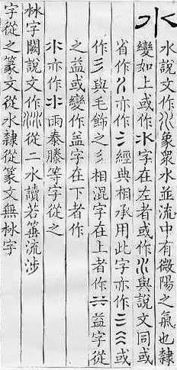 水
水說文作象眾水並流中有微陽之氣也隸
變如上或作氺字在左者或作與說文同或
省作亦作氵經典相承用此字亦作或
作彡與毛飾之彡相混字在上者作益字從
之益或變作益字在下者作
氺亦作雨泰滕等字從之
沝字闕說文作從二水讀若箠流涉
字從之篆文從水隸從篆文無沝字